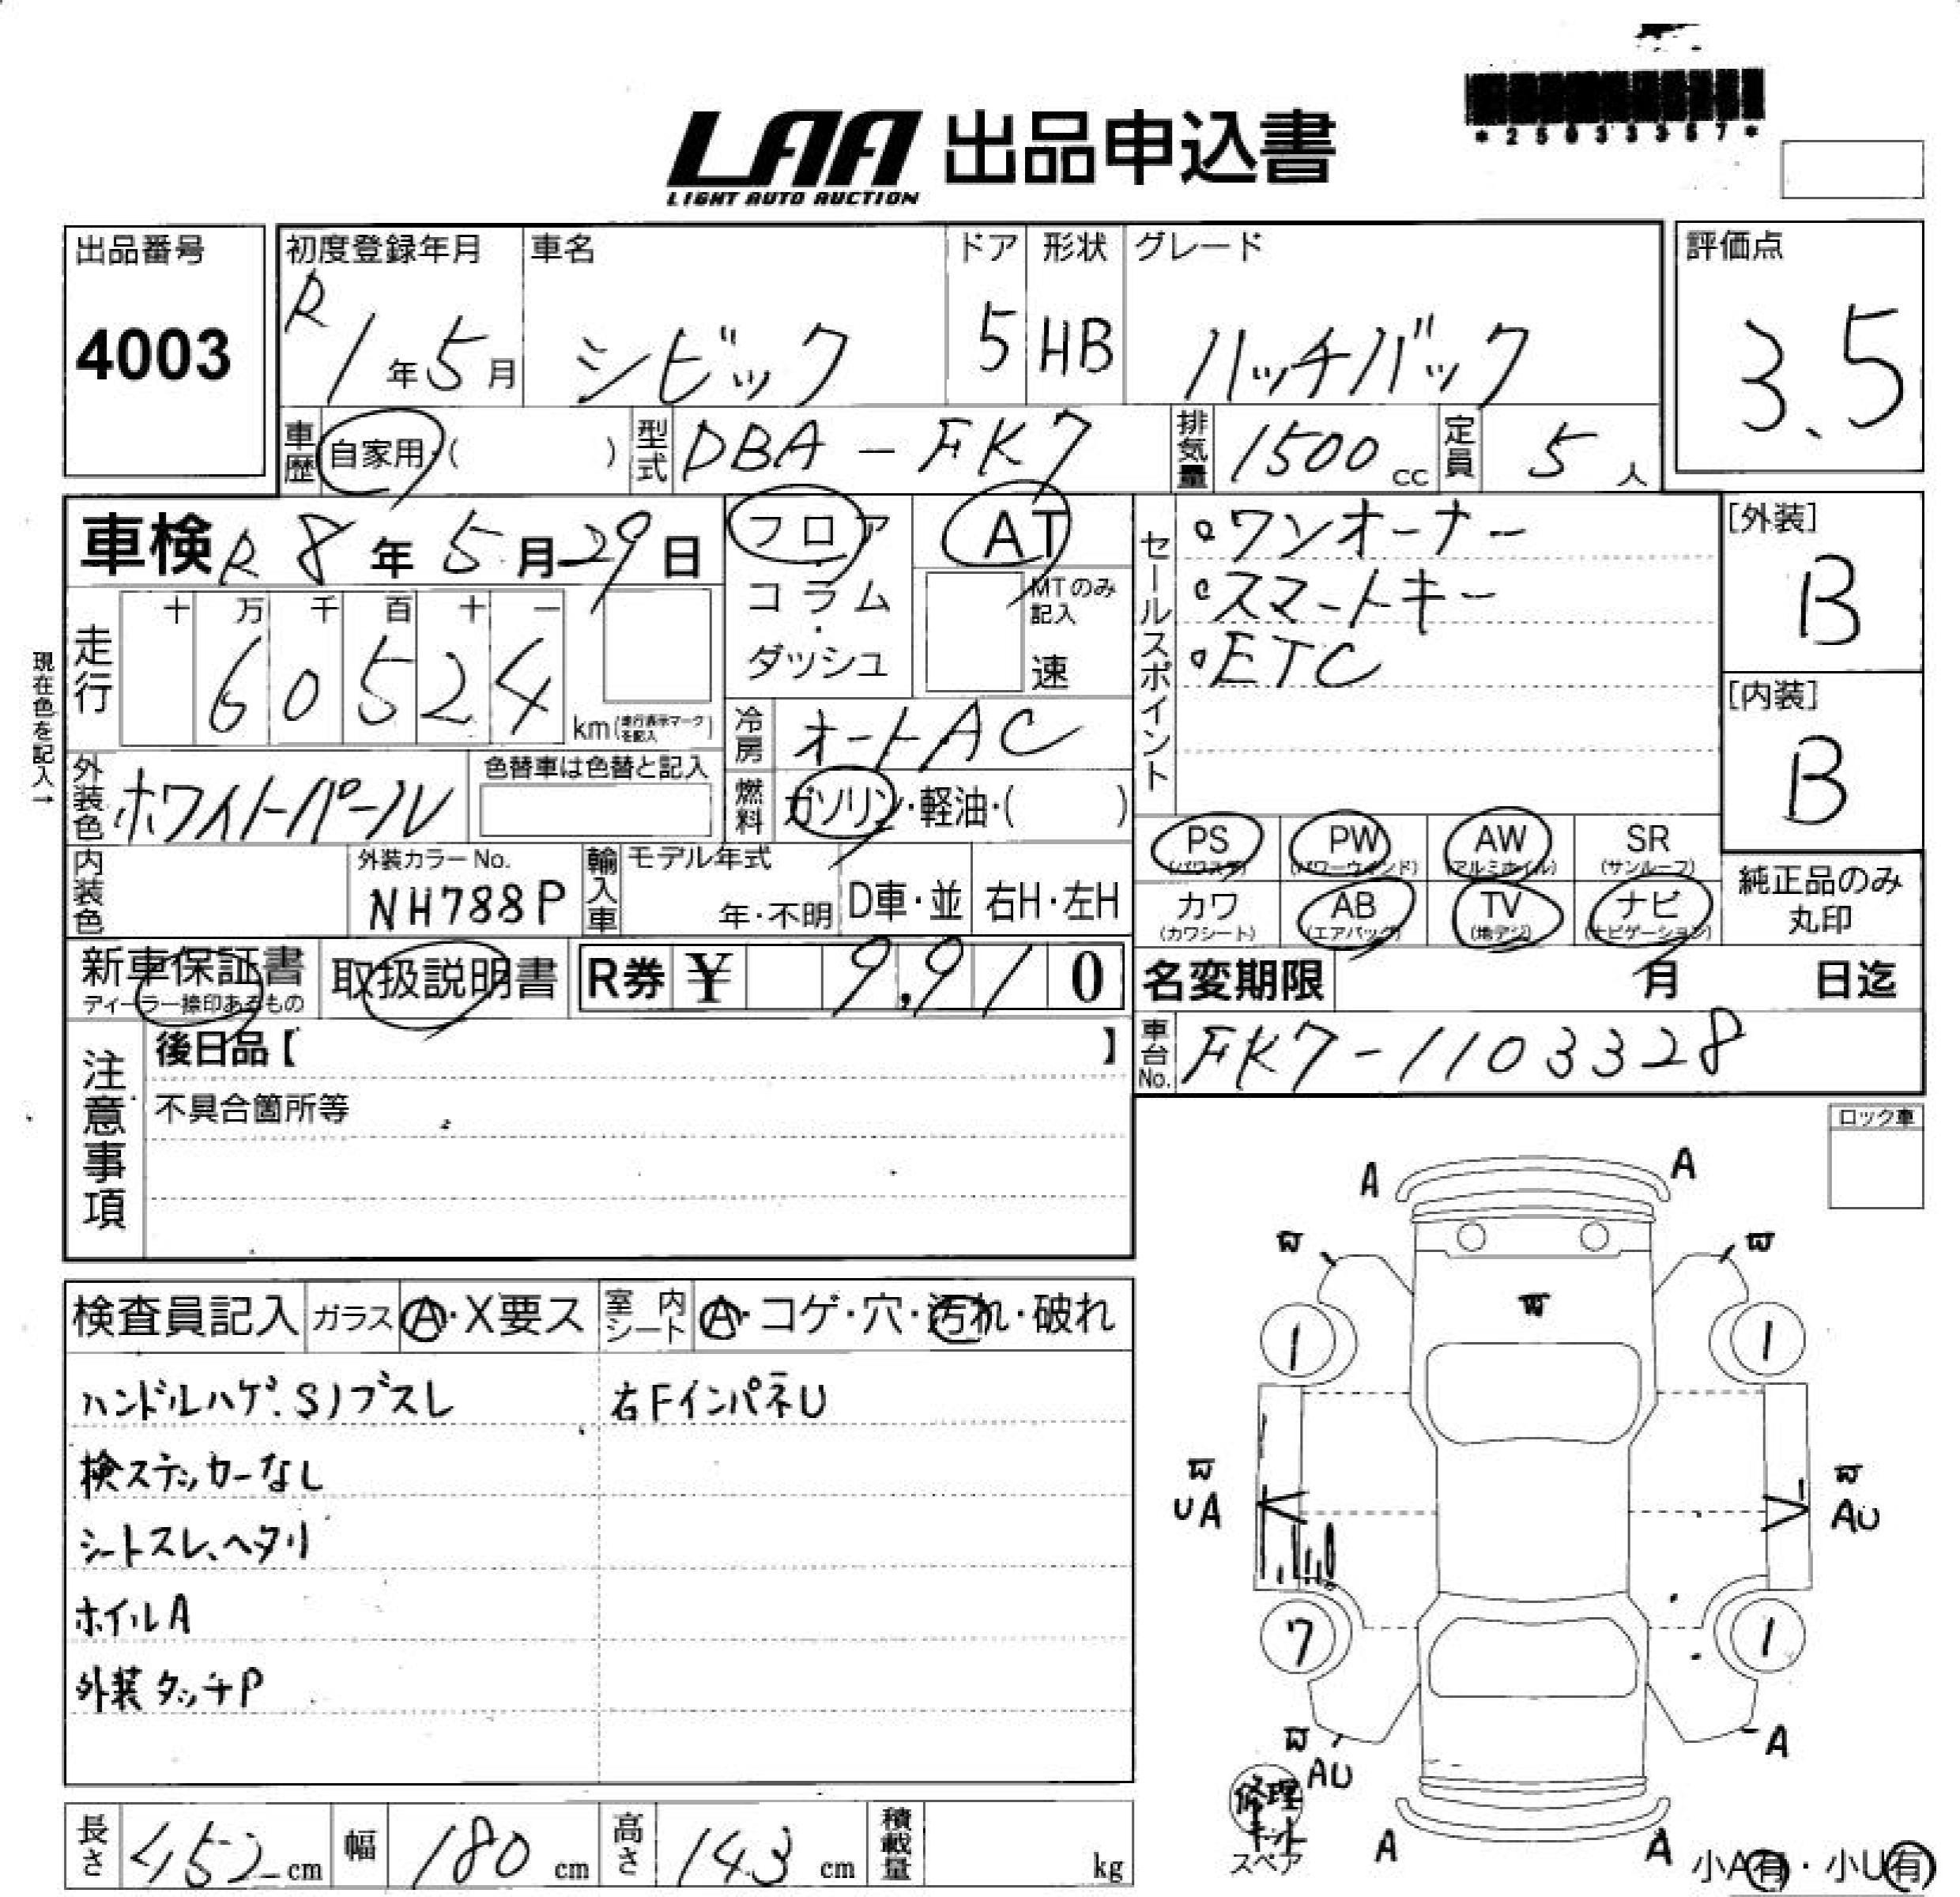 *25033367*
LAA 出品申込書
LIGHT AUTO AUCTION
出品番号
4003
初度登録年月
R1年5月
車名
シビック
ドア
5
形状
HB
グレード
ハッチバック
評価点
3.5
車歴
自家用・( )
型式
DBA-FK7
排気量
1500cc
定員
5人
車検 R8年5月29日
フロア
コラム
・
ダッシュ
AT
MTのみ記入
速
セールスポイント
・ワンオーナー
・スマートキー
・ETC
[外装]
B
[内装]
B
現在色を記入→
走行
十 万 千 百 十 一
60524
km(走行表示マークを記入)
冷房
オートAC
外装色
ホワイトパール
色替車は色替と記入
燃料
ガソリン・軽油・( )
PS (パワステ)
PW (パワーウインド)
AW (アルミホイル)
SR (サンルーフ)
カワ (カワシート)
AB (エアバッグ)
TV (地デジ)
ナビ (ナビゲーション)
純正品のみ
丸印
内装色
外装カラーNo.
NH788P
輸入車
モデル年式
年・不明
D車・並
右H・左H
新車保証書
ディーラー捺印あるもの
取扱説明書
R券 ¥ 9,910
名変期限 月 日迄
車台No.
FK7-1103328
注意事項
後日品【 】
不具合箇所等
ロック車
検査員記入
ガラス
A・X要ス
室内シート
A・コゲ・穴・汚れ・破れ
ハンドルハゲ.S)ブスレ
右FインパネU
検ステッカーなし
シートスレ、ヘタリ
ホイルA
外装タッチP
A A
1 1
UA
AU
7 1
AU
A
修理キット
スペア
A A
小A有・小U有
長さ 452cm
幅 180cm
高さ 143cm
積載量 kg